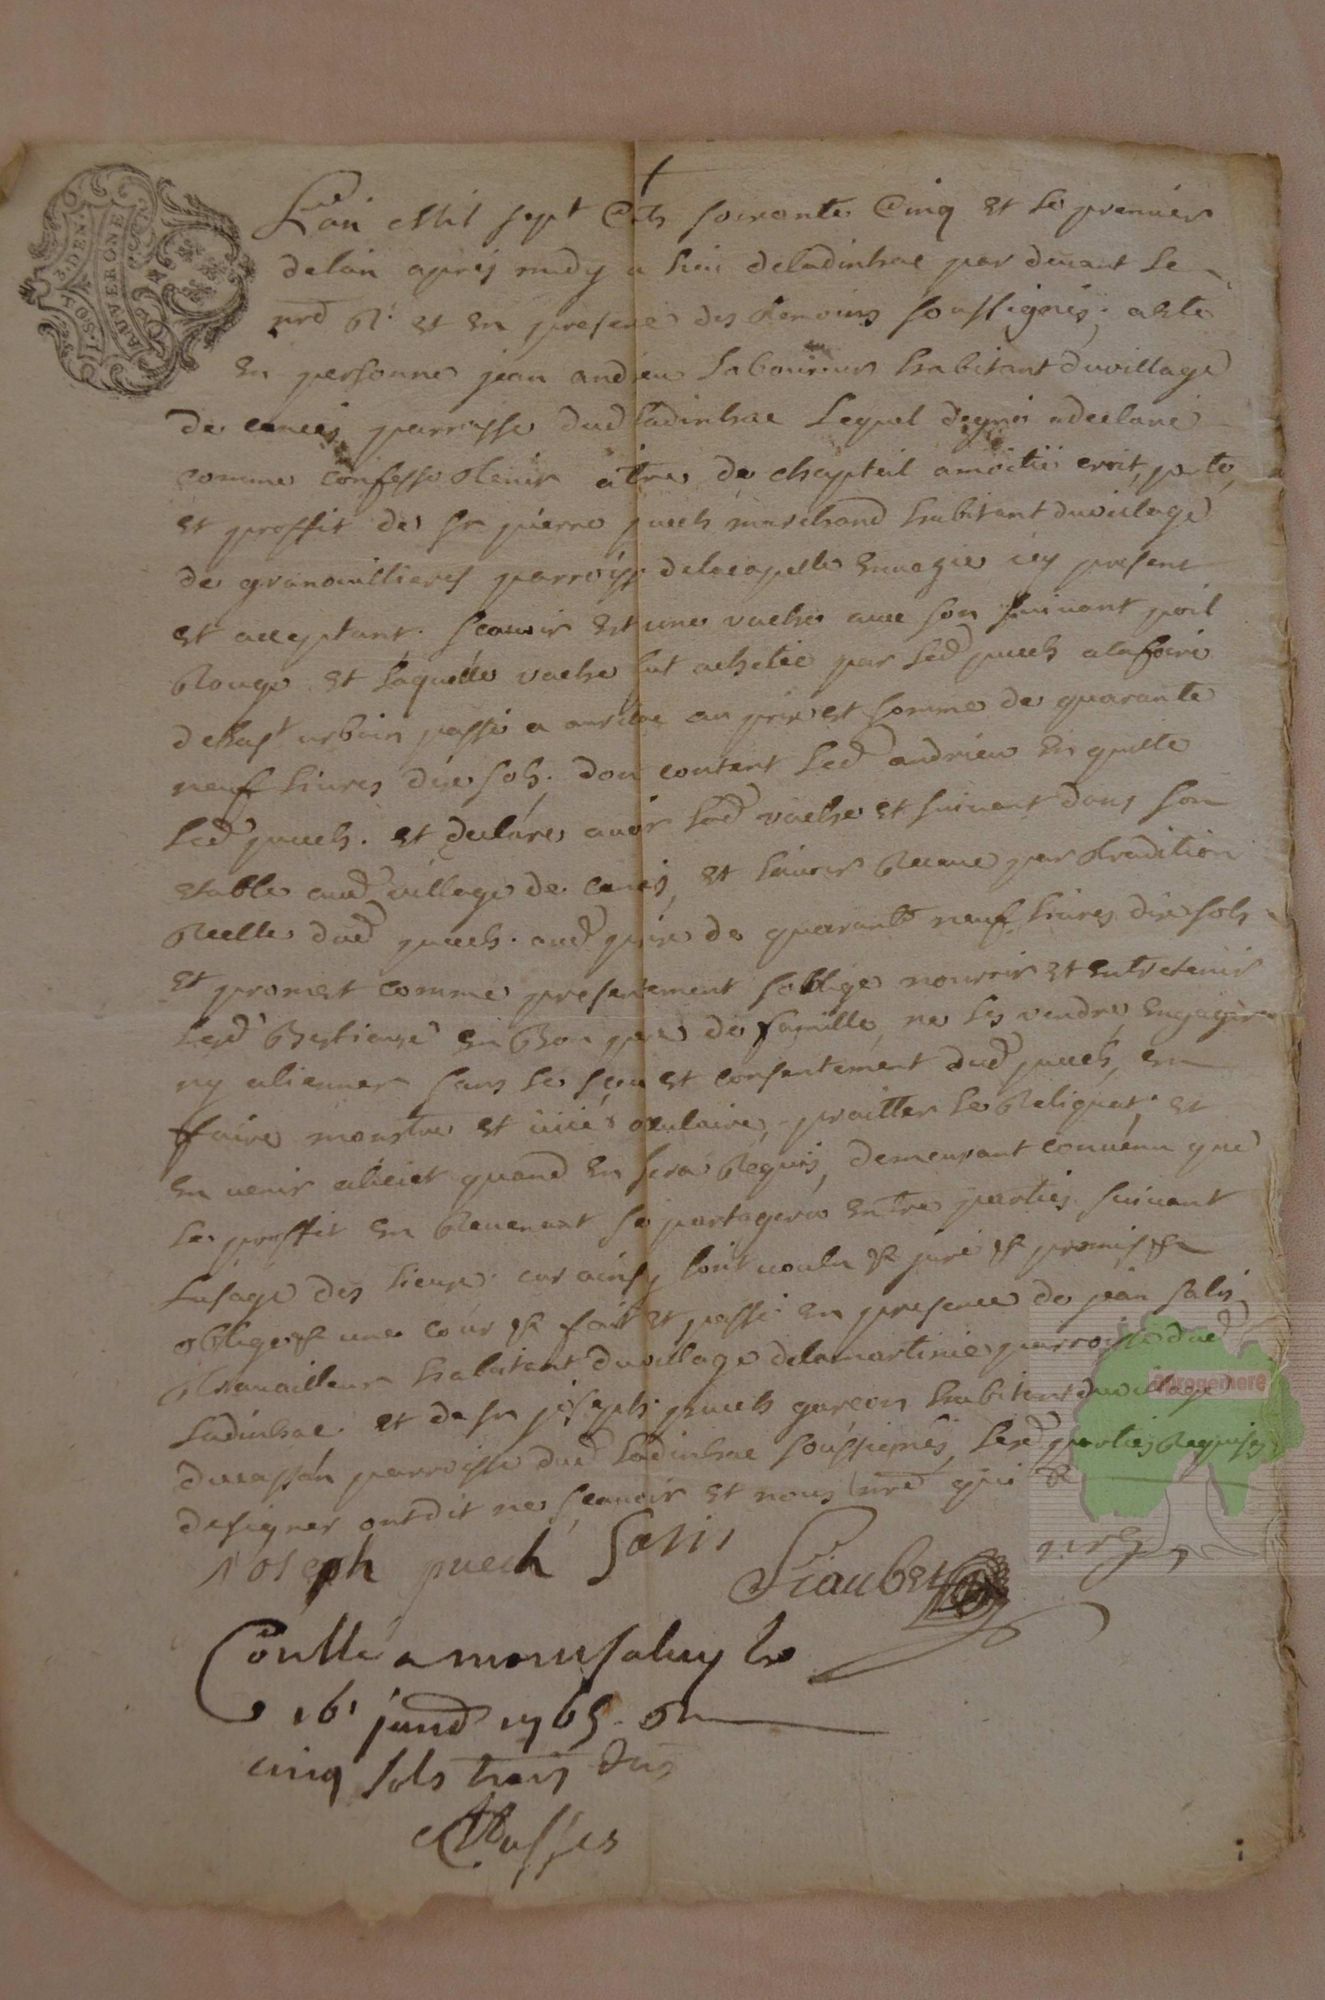 I. SOL 3. DEN.
AUVERGNE
L'an Mil sept Cents soixante Cinq Et Le premier
de lan apres midy a lieu de Ladinhac par devant Le
nre Rl. Et En presence des temoins soussignés, a Eté
En personne jean andrieu Laboureur habitant du village
de parroisse dud Ladinhac Lequel de gré a declaré
comme confesse tenir a titre de chapteil a moitié croit, perte,
Et proffit de sr pierre puech marchand habitant du village
de granouillieres parroisse de lacapelle Enuezie icy present
Et acceptant. Scauoir Est une vache auec son suiuant poil
Rouge Et Laquelle vache fut achetée par Led puech a la foire
de st urbain passé a aurilac au prix Et somme de quarante
neuf Liures dix sols. dont content Led andrieu En quitte
Led puech. Et declare auoir Lad vache Et suiuant dans son
Etable aud village de Et L'auoir Receue par tradition
Reelle dud puech. aud prix de quarante neuf Liures dix sols
Et promet comme presentement s'oblige nourrir Et Entretenir
Lesd Bestieaux En Bon pere de famille, ne Les vendre, Engager
ny alienner sans Le sceu Et consentement dud puech, En
ffaire monstre Et oculaire, Le Reliquat, Et
En venir quand En sera Requis, demeurant convenu que
Le proffit En Reuenant se partagera Entre parties suiuant
Lusage des Lieux. car ainsy L'ont voulu & juré & promis &
oblige & une cour & fait Et passé En presence de jean Salis
trauailleur habitant du village de lamartinie parroisse dud
Ladinhac. Et de sr joseph puech garçon habitant du village
ducassan parroisse dud Ladinhac soussignés, Lesd parties Requises
de signer ont dit ne scauoir Et nous nre qui &
joseph puech Salis
nre
Conllé a monsaluy le
16e janv 1765. Rl
cinq sols trois drs
aprogemere